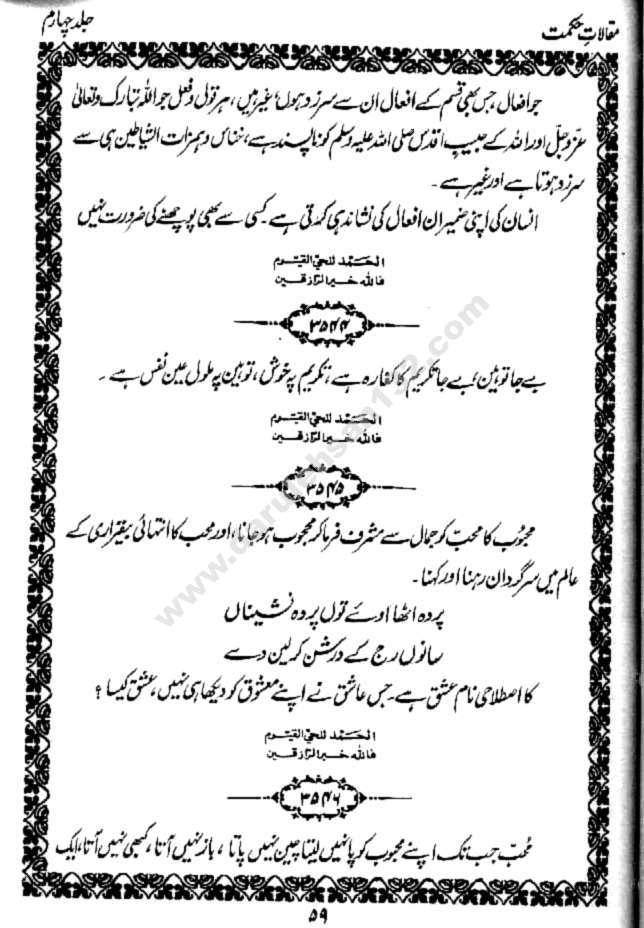 مقالاتِ حکمت
جلد چہارم
جو افعال جس بھی قسم کے افعال ان سے سرزد ہوں، غیر ہیں، ہر قول و فعل جو اللہ تبارک و تعالیٰ
عزّ و جلّ اور اللہ کے حبیبِ اقدس صلی اللہ علیہ وسلم کو ناپسند ہے، خناس و ہمزات الشیاطین ہی سے
سرزد ہوتا ہے اور غیر ہے۔
انسان کی اپنی ضمیر ان افعال کی نشاندہی کرتی ہے۔ کسی سے بھی پوچھنے کی ضرورت نہیں
الحَمْد للحیّ القیّوم
فاللہ خیر الرّازقین
۳۵۴۴
بے جا توہین، بے جا تکریم کا کفارہ ہے، تکریم پہ خوش، توہین پہ ملول عین نفس ہے۔
الحَمْد للحیّ القیّوم
فاللہ خیر الرّازقین
۳۵۴۵
محبُوب کا محب کو جمال سے مشرف فرما کر محجوب ہو جانا، اور محب کا انتہائی بیقراری کے
عالم میں سرگردان رہنا اور کہنا۔
پردہ اٹھا اوئے توں پردہ نشیناں
سانوں رج کے درشن کر لین دے
کا اصطلاحی نام عشق ہے۔ جس عاشق نے اپنے معشوق کو دیکھا ہی نہیں، عشق کیسا؟
الحَمْد للحیّ القیّوم
فاللہ خیر الرّازقین
۳۵۴۶
محبّ جب تک اپنے محبوب کو پا نہیں لیتا چین نہیں پاتا، باز نہیں آتا، کبھی نہیں آتا، ایک
۵۹
www.darulehsan19?.com